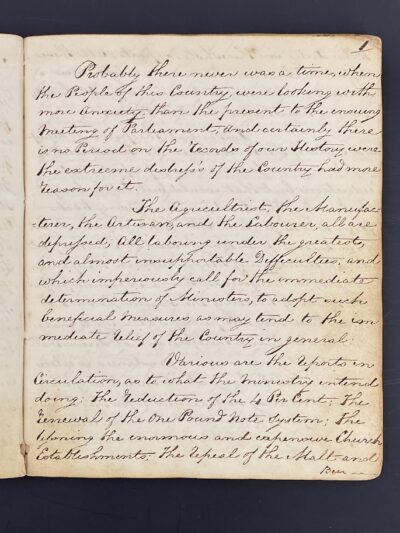 1
Probably there never was a time, when
the People of this Country, were looking with
more anxiety, than the present to the ensuing
Meeting of Parliament, and certainly there
is no Period on the Records of our History were
the extreeme distress of the Country had more
reason for it.
The Agricultrist, the Manufac-
-terer, the Artisan, and the Labourer, all are
depressed, All labouring under the greatest,
and almost insupportable Difficulties, and
which imperiously call for the immediate
determination of Ministers, to adopt such
beneficial Measures as may tend to the im
mediate relief of the Country in general.
Various are the Reports in
Circulation, as to what the Ministry intend
doing; The Reduction of the 4 Per Cent; The
Renewal of the One Pound Note System; The
the enormous and expensive Church
Establishments; The Repeal of the Malt and
Beer —